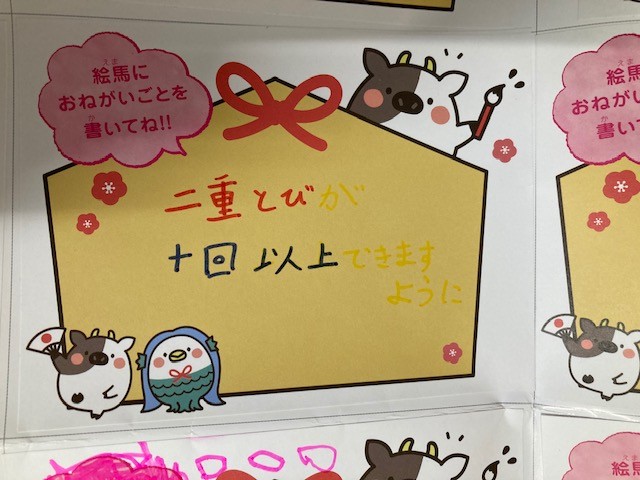 絵馬に
おねがいごとを
書いてね!!
二重とびが
十回以上できます
ように
絵馬
おねがい
書いて
絵馬